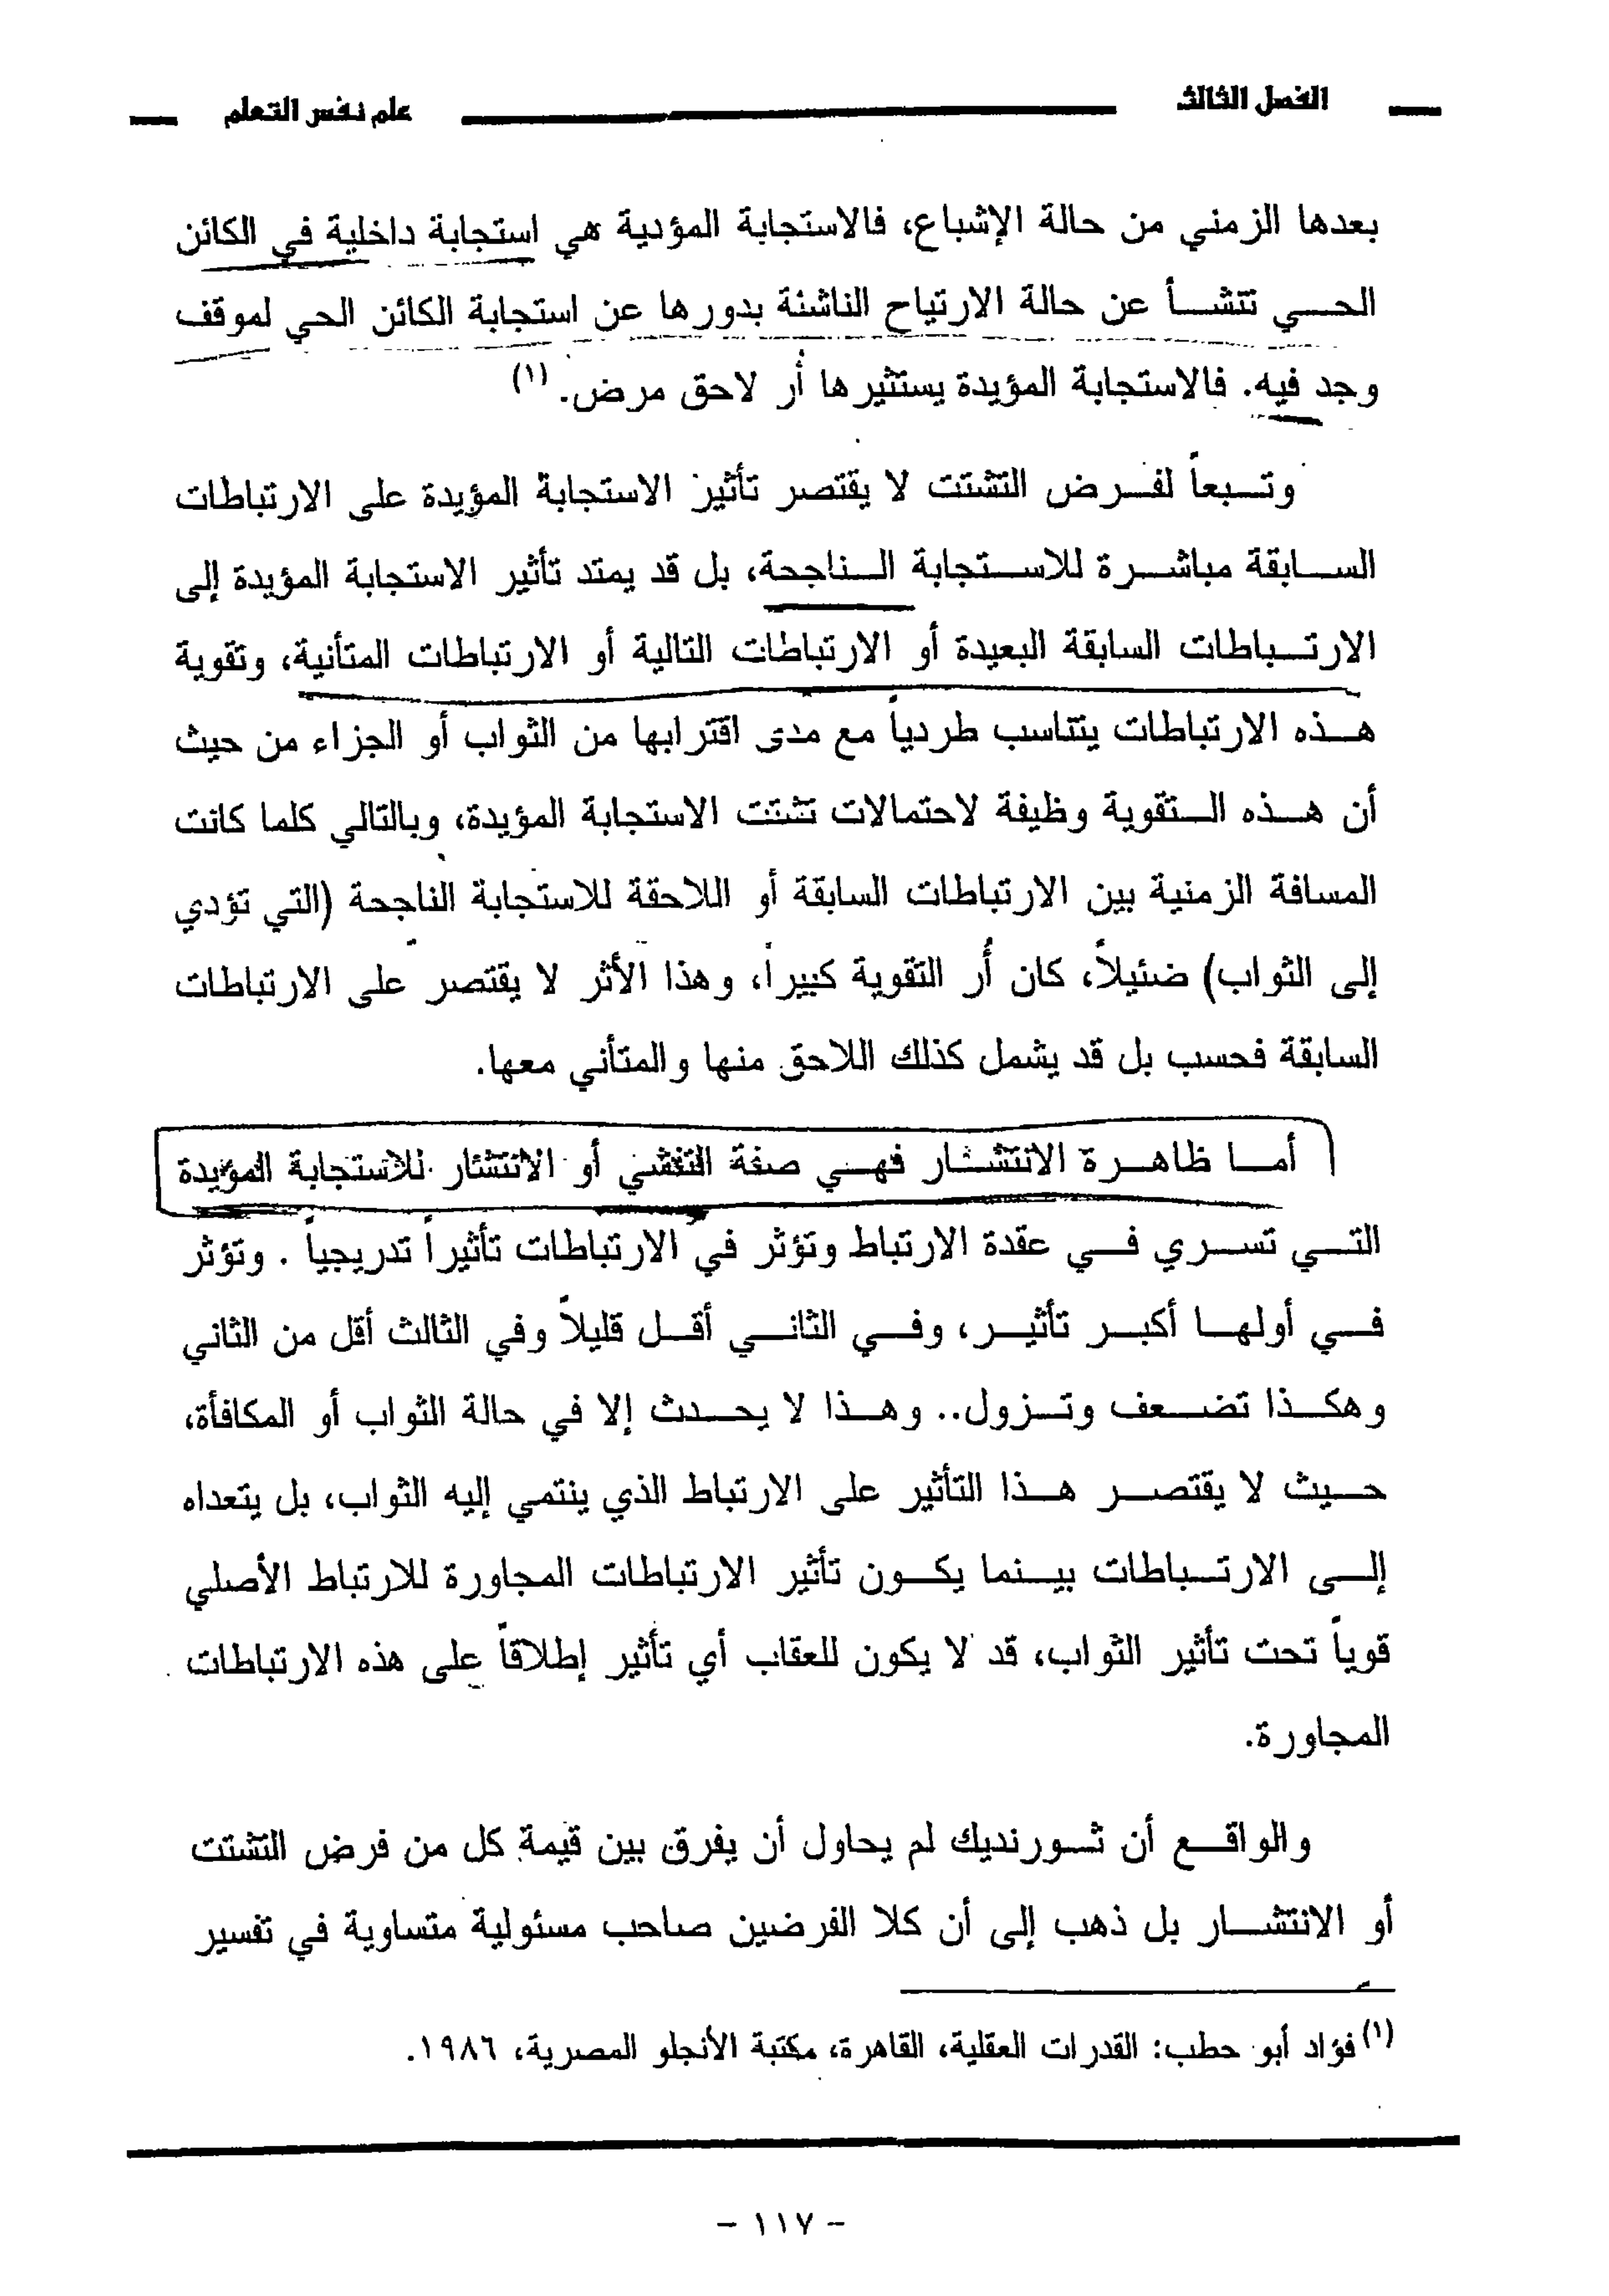 الفصل الثالث
علم نفس التعلم
بعدها الزمني من حالة الإشباع، فالاستجابة المؤدية هي استجابة داخلية في الكائن
الحي تتشأ عن حالة الارتياح الناشئة بدورها عن استجابة الكائن الحي لموقف
وجد فيه. فالاستجابة المؤيدة يستثيرها أُر لاحق مرض. (١)
وتبعاً لفرض التشتت لا يقتصر تأثير الاستجابة المؤيدة على الارتباطات
السابقة مباشرة للاستجابة الناجحة، بل قد يمتد تأثير الاستجابة المؤيدة إلى
الارتباطات السابقة البعيدة أو الارتباطات التالية أو الارتباطات المتأنية، وتقوية
هذه الارتباطات يتناسب طردياً مع مدى اقترابها من الثواب أو الجزاء من حيث
أن هذه التقوية وظيفة لاحتمالات تشتت الاستجابة المؤيدة، وبالتالي كلما كانت
المسافة الزمنية بين الارتباطات السابقة أو اللاحقة للاستجابة الناجحة (التي تؤدي
إلى الثواب) ضئيلاً، كان أُر التقوية كبيراً، وهذا الأثر لا يقتصر على الارتباطات
السابقة فحسب بل قد يشمل كذلك اللاحق منها والمتأني معها.
أما ظاهرة الانتشار فهي صفة التفشي أو الانتشار للاستجابة المؤيدة
التي تسري في عقدة الارتباط وتؤثر في الارتباطات تأثيراً تدريجياً . وتؤثر
في أولها أكبر تأثير، وفي الثاني أقل قليلاً وفي الثالث أقل من الثاني
وهكذا تضعف وتزول.. وهذا لا يحدث إلا في حالة الثواب أو المكافأة،
حيث لا يقتصر هذا التأثير على الارتباط الذي ينتمي إليه الثواب، بل يتعداه
إلى الارتباطات بينما يكون تأثير الارتباطات المجاورة للارتباط الأصلي
قوياً تحت تأثير الثواب، قد لا يكون للعقاب أي تأثير إطلاقاً على هذه الارتباطات
المجاورة.
والواقع أن ثورنديك لم يحاول أن يفرق بين قيمة كل من فرض التشتت
أو الانتشار بل ذهب إلى أن كلا الفرضين صاحب مسئولية متساوية في تفسير
(١) فؤاد أبو حطب: القدرات العقلية، القاهرة، مكتبة الأنجلو المصرية، ١٩٨٦.
- ١١٧ -